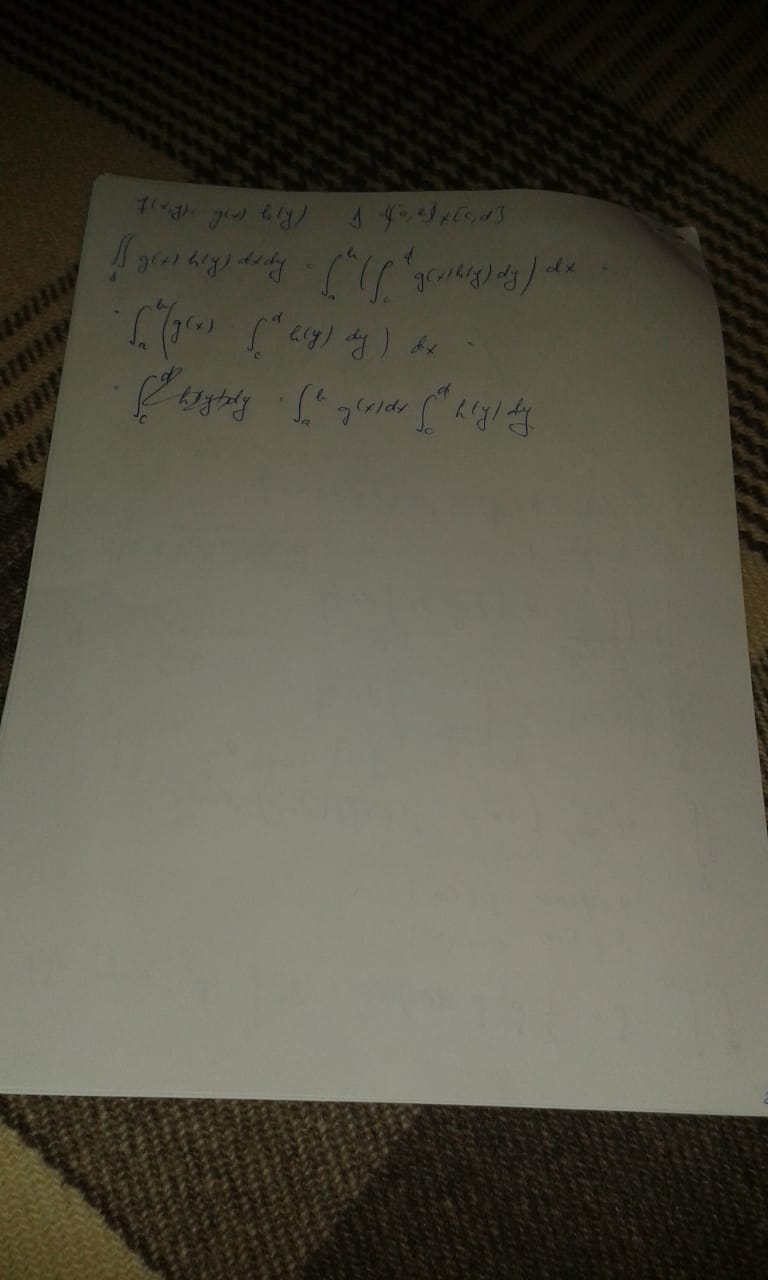 f(x,y) = g(x) h(y) Δ = [a,b]×[c,d]
∬_Δ g(x) h(y) dxdy = ∫_a^b (∫_c^d g(x) h(y) dy) dx =
= ∫_a^b (g(x) ∫_c^d h(y) dy) dx =
= ∫_a^b g(x) dx ∫_c^d h(y) dy.